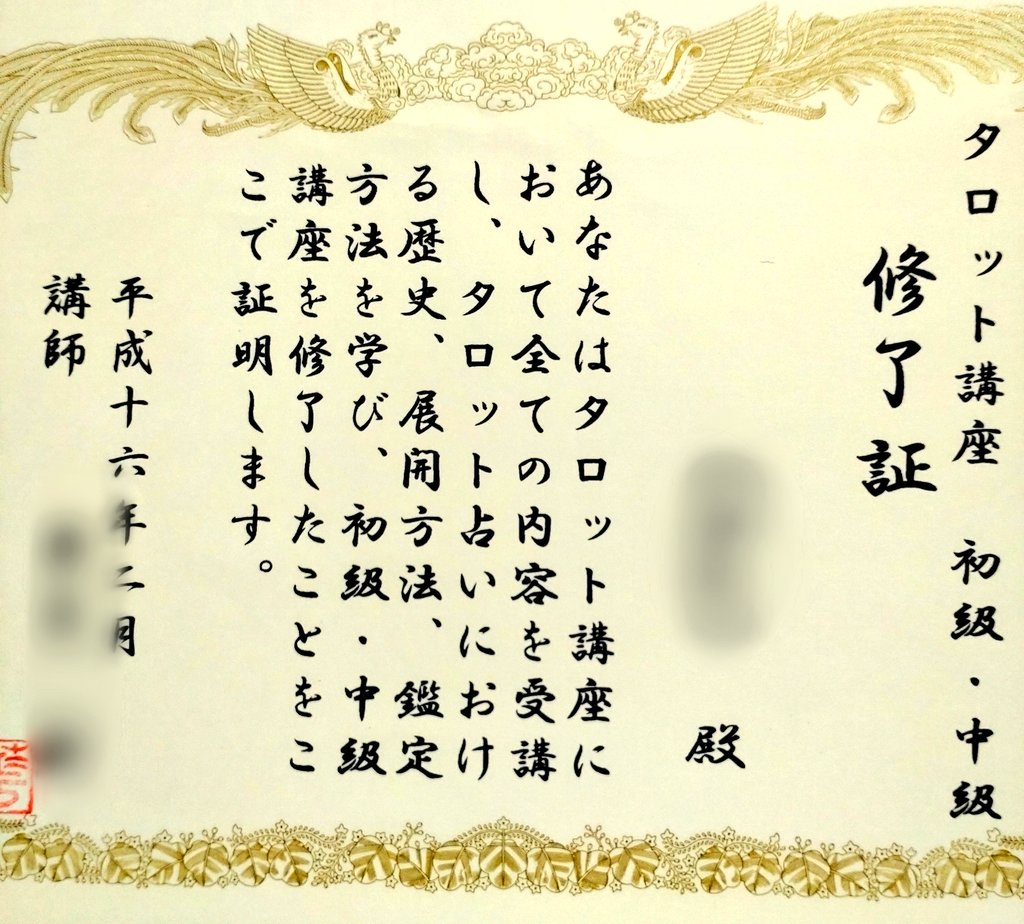 タロット講座　初級・中級
修了証
殿
あなたはタロット講座に
おいて全ての内容を受講
し、タロット占いにおけ
る歴史、展開方法、鑑定
方法を学び、初級・中級
講座を修了したことをこ
こで証明します。
平成十六年二月
講師